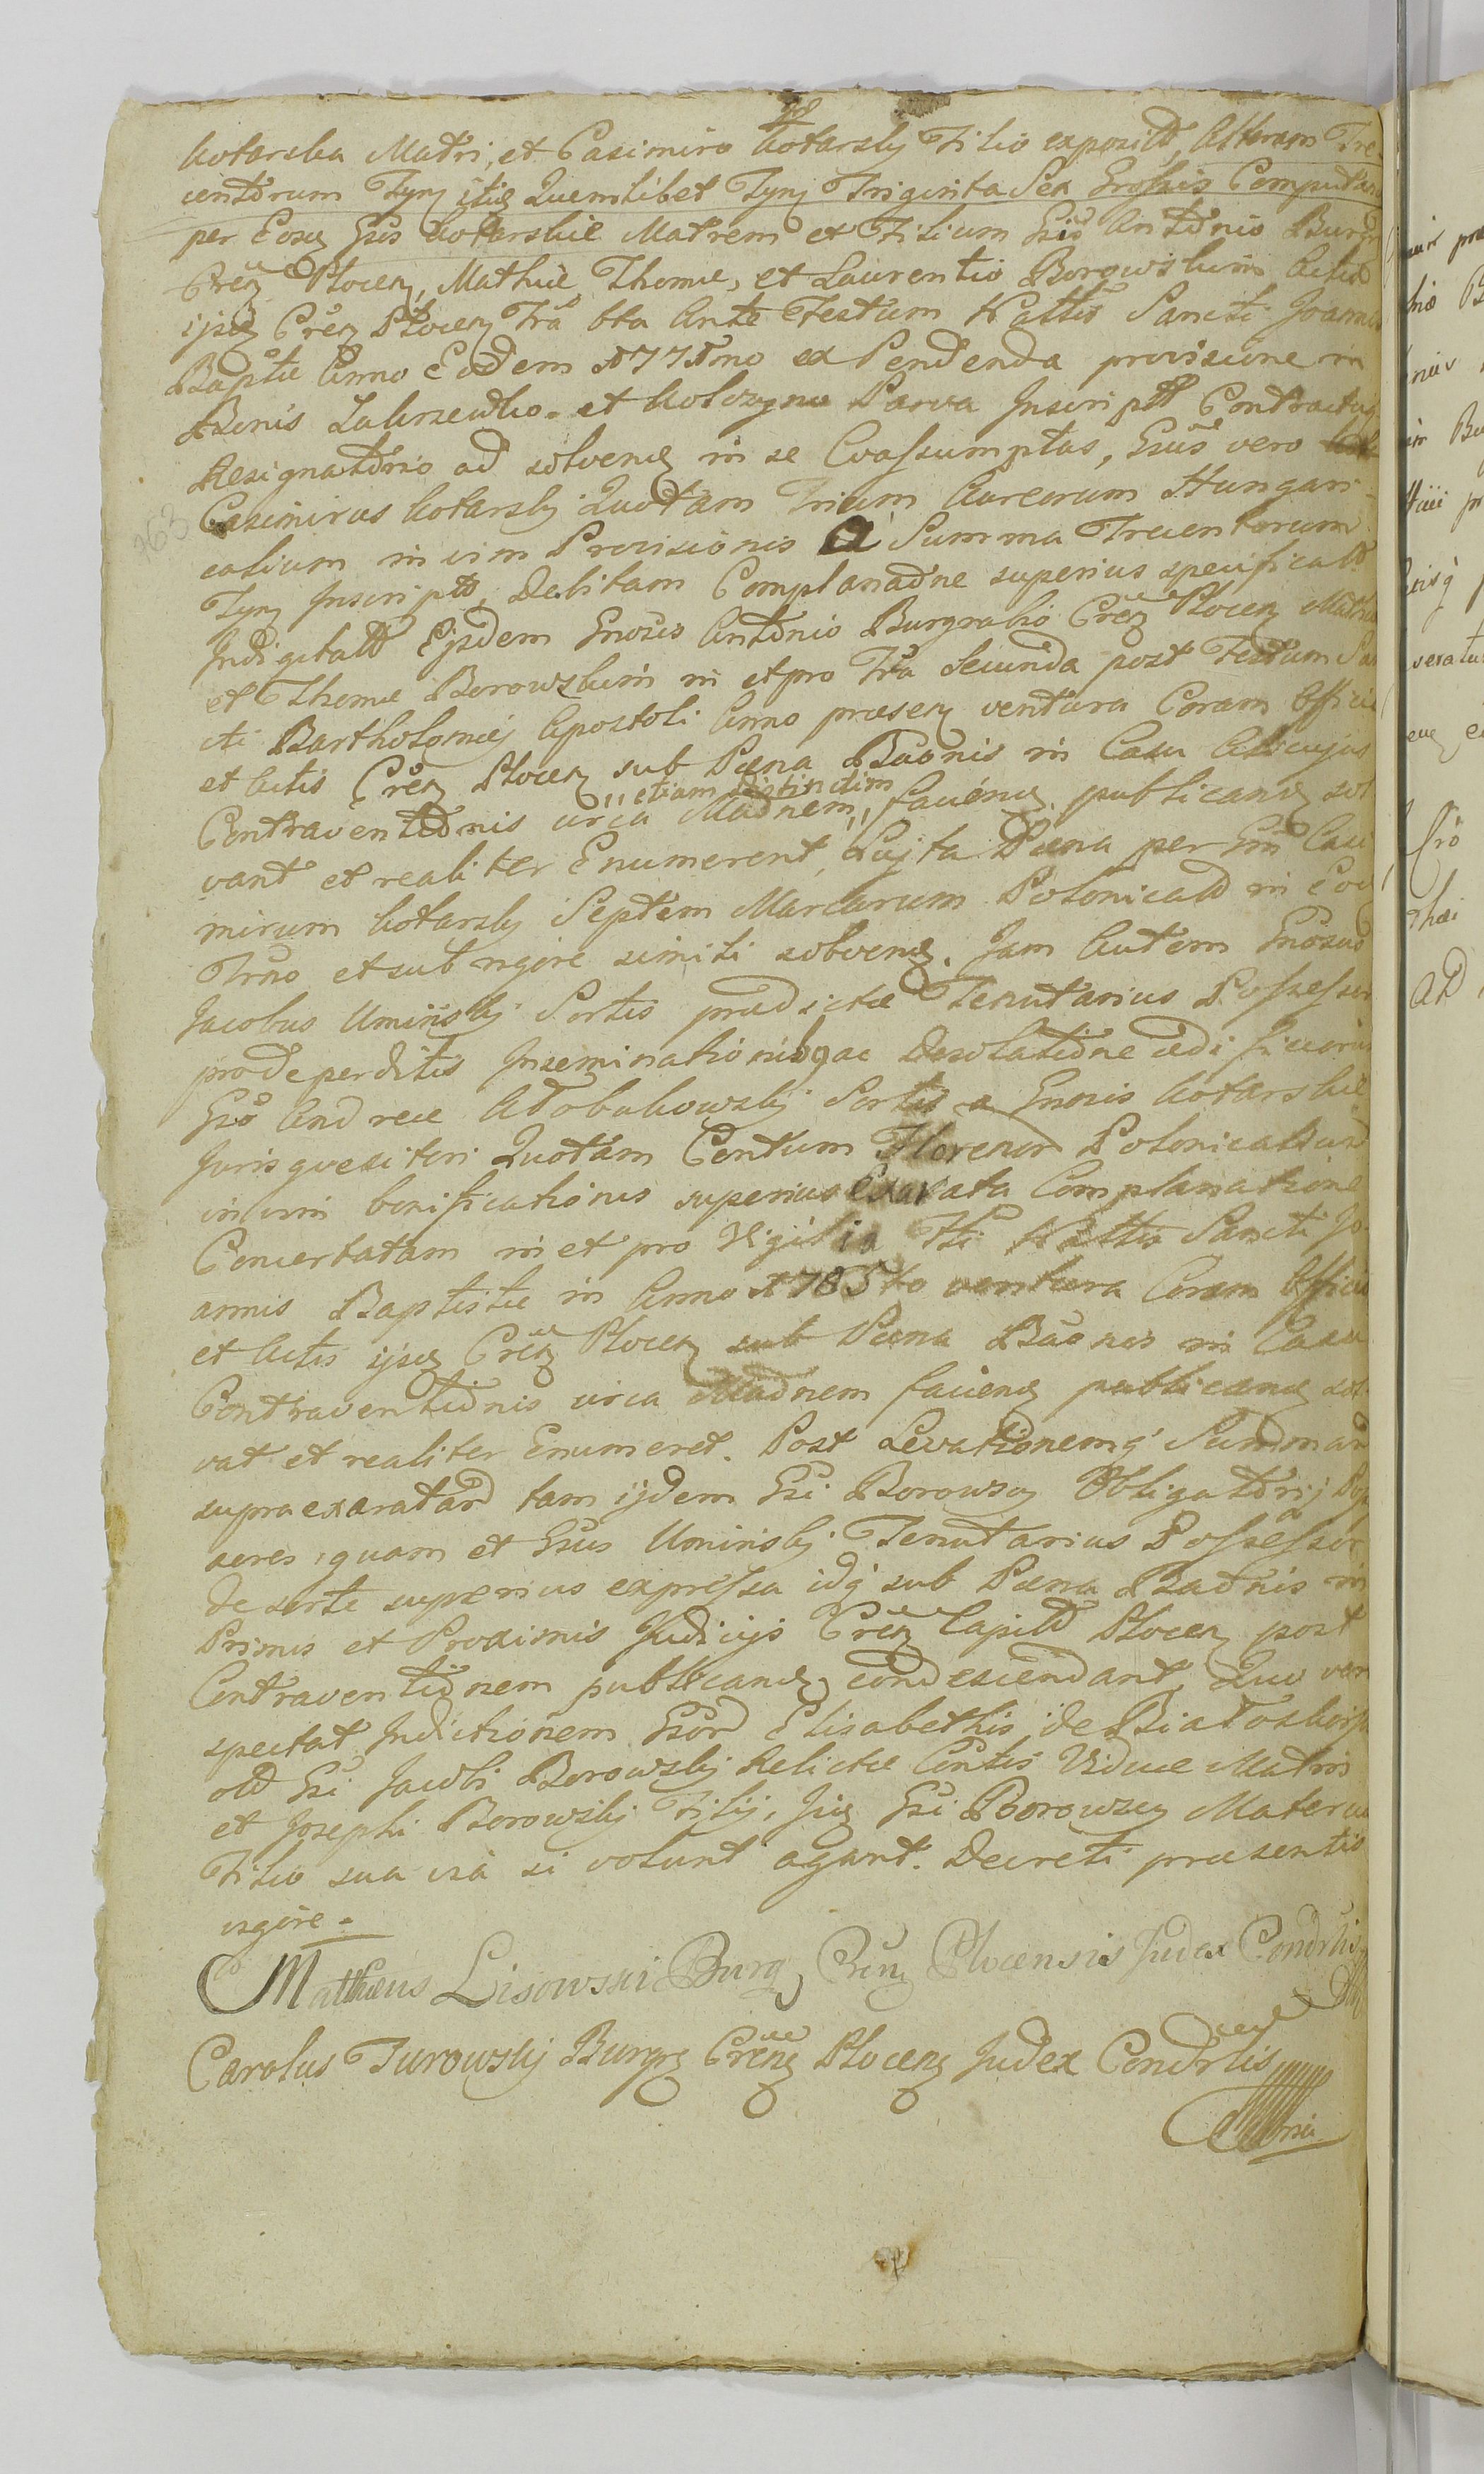 Kotarska Matri, et Casimiro Kotarsky Filio exposit, Alteram Tre
centorum Tyny itiq Quemlibet Tyny Triginta Sex Grossis Computan
per Eosq Gsos Kotarskie Matrem et Filium Gsis Antonio Burgr
Cren Plocen, Mathiæ Thomæ, et Laurentio Borowskim Actis
ijsq Cren Plocen Fra bta Ante Festum Nattis Sancti Joannis
Baptæ Anno Eodem 177 mo ex Pendenda provisione in
Bonis Zakrzewko et Kolozyna Parva Inscript Contractuq
Resignatorio ad solvenq in se Coassumptas, Gsus vero
Casimirus Kotarsky Quotam Trium Aureorum Hungari-
calium in vim Provisionis a Summa Trecentorum
Tyny Inscript, Debitam Complanaone superius specificatt
Indigitatt Ejsdem Gnosis Antonio Burgrabio Cren Plocen Mathiæ
et Thomæ Borowskim in et pro Fra Secunda post Festum San
cti Bartholomæj Apostoli Anno præsen ventura Coram Officio
et Actis Cren Plocen sub Pæna Baonis in Casu Alicujus
Contraventionis circa Maonem "etiam distinctim" faciend publicanq sol
vant et realiter Enumerent, Lujta Pæna per Gsm Casi
mirum Kotarsky Septem Marcarum Polonicald in Eod
Frno et sub rigore simili solvenq. Jam Autem Gnosus
Jacobus Uminsky Sortis prædictæ Tenutarius Possessor
pro deperditis Inseminationibq ac Desolatione ædificiorum
Gso Andreæ Adobukowsky Sortis a Gnosis Kotarskie
Jurisquæsitori Quotam Centum Florenor Polonicalium
in vim bonificationis superius Exarata Complanatione
Concertatam in et pro Vigilia Fti Nattis Sancti Jo
annis Baptistæ in Anno 1785to ventura Coram Officio
et Actis ijsq Cren Plocen sub Pæna Baonis in Casu
Contraventionis circa Maonem facienq publicanq sol
vat et realiter Enumeret. Post Levationemq Summar
supraexaratar tam ijdem Gsi Borowscy Obligatorij Pos
sores, quam et Gsus Uminsky Tenutarius Possessor
de sorte superius expressa idq sub Pæna Baonis in
Primis et Proximis Judicijs Cren Capitt Plocen post
Contraventionem publicanq condescendant, Quo vero
spectat Indictionem Gsor Elisabethis de Biatoskorsk
old Gsi Jacobi Borowsky Relictæ Contis Viduæ Matris
et Josephi Borowsky Filij, Jiq Gsi Borowscy Mater cu
Filio sua via si volunt agant. Decreti præsentis
vigore.
Mathæus Lisowski Burg Cren Plocensis Judex Condrlis
Carolus Turowsky Burgr Cren Plocen Judex Condrlis